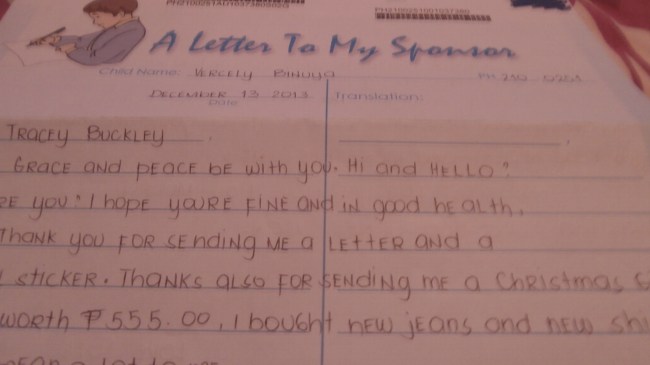 A Letter To My Sponsor
Child Name: VERCELY BINUYA
DECEMBER 13 2013 Translation:
Date
TRACEY BUCKLEY
GRACE and pEACE bE with yoU. Hi and HELLO?
RE yoU? I hopE yoURE FiNE ANd iN good hEAlth.
ThANK yoU FOR SENdiNg ME a LEttER ANd a
STiCKER. ThANKS alSO FOR SENdiNg ME a ChRiStmas
worth ₱555.00, I boUght NEW jEaNS and NEW